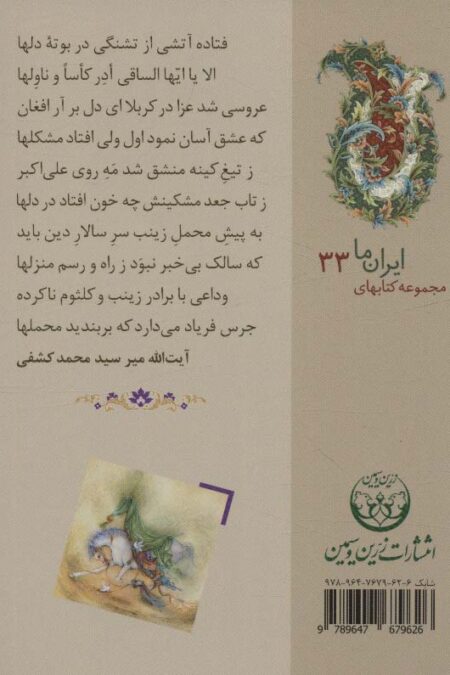 فتاده آتشی از تشنگی در بوتهٔ دلها
الا یا ایّها الساقی أدِر کأساً و ناوِلها
عروسی شد عزا در کربلا ای دل بر آر افغان
که عشق آسان نمود اول ولی افتاد مشکلها
ز تیغِ کینه منشق شد مَهِ روی علی‌اکبر
ز تاب جعد مشکینش چه خون افتاد در دلها
به پیشِ محملِ زینب سرِ سالارِ دین باید
که سالک بی‌خبر نبوَد ز راه و رسم منزلها
وداعی با برادر زینب و کلثوم ناکرده
جرس فریاد می‌دارد که بربندید محملها
آیت‌الله میر سید محمد کشفی
ایران ما ۳۳
مجموعه کتابهای
زرین و سیمین
انتشارات زرین و سیمین
شابک ۶-۶۲-۷۶۷۹-۹۶۴-۹۷۸
9 789647 679626